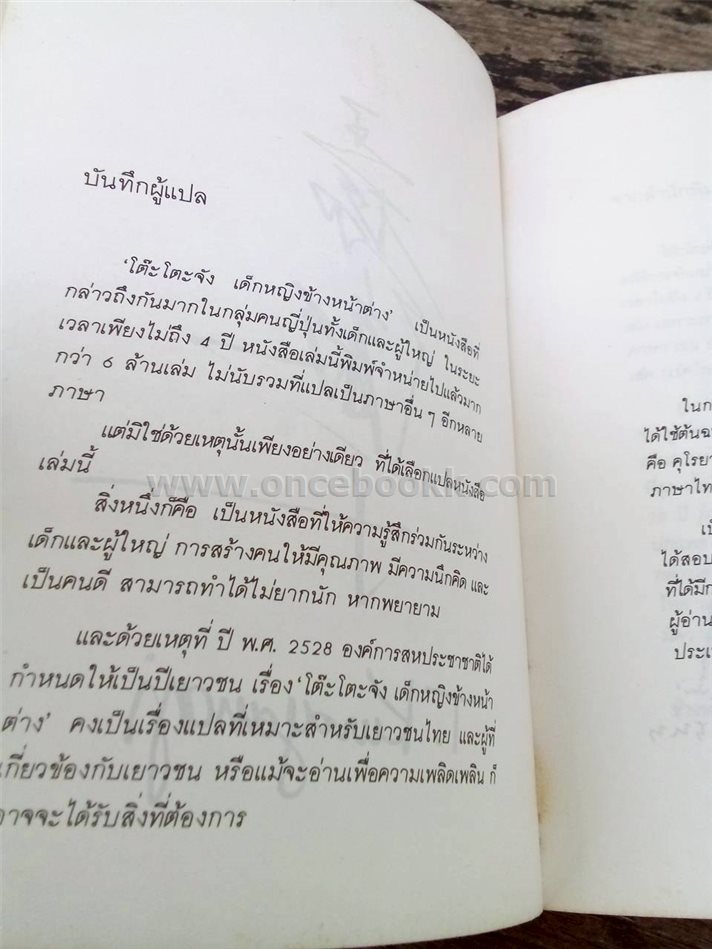 บันทึกผู้แปล
'โต๊ะโตะจัง เด็กหญิงข้างหน้าต่าง' เป็นหนังสือที่
กล่าวถึงกันมากในกลุ่มคนญี่ปุ่นทั้งเด็กและผู้ใหญ่ ในระยะ
เวลาเพียงไม่ถึง 4 ปี หนังสือเล่มนี้พิมพ์จำหน่ายไปแล้วมาก
กว่า 6 ล้านเล่ม ไม่นับรวมที่แปลเป็นภาษาอื่น ๆ อีกหลาย
ภาษา
แต่มิใช่ด้วยเหตุนั้นเพียงอย่างเดียว ที่ได้เลือกแปลหนังสือ
เล่มนี้
www.oncebookh.com
สิ่งหนึ่งก็คือ เป็นหนังสือที่ให้ความรู้สึกร่วมกันระหว่าง
เด็กและผู้ใหญ่ การสร้างคนให้มีคุณภาพ มีความนึกคิด และ
เป็นคนดี สามารถทำได้ไม่ยากนัก หากพยายาม
และด้วยเหตุที่ ปี พ.ศ. 2528 องค์การสหประชาชาติได้
กำหนดให้เป็นปีเยาวชน เรื่อง 'โต๊ะโตะจัง เด็กหญิงข้างหน้า
ต่าง' คงเป็นเรื่องแปลที่เหมาะสำหรับเยาวชนไทย และผู้ที่
เกี่ยวข้องกับเยาวชน หรือแม้จะอ่านเพื่อความเพลิดเพลิน ก็
อาจจะได้รับสิ่งที่ต้องการ
ในก
ได้ใช้ต้นฉ
คือ คุโรยา
ภาษาไท
เ
ได้สอบ
ที่ได้มีก
ผู้อ่าน
ประเ